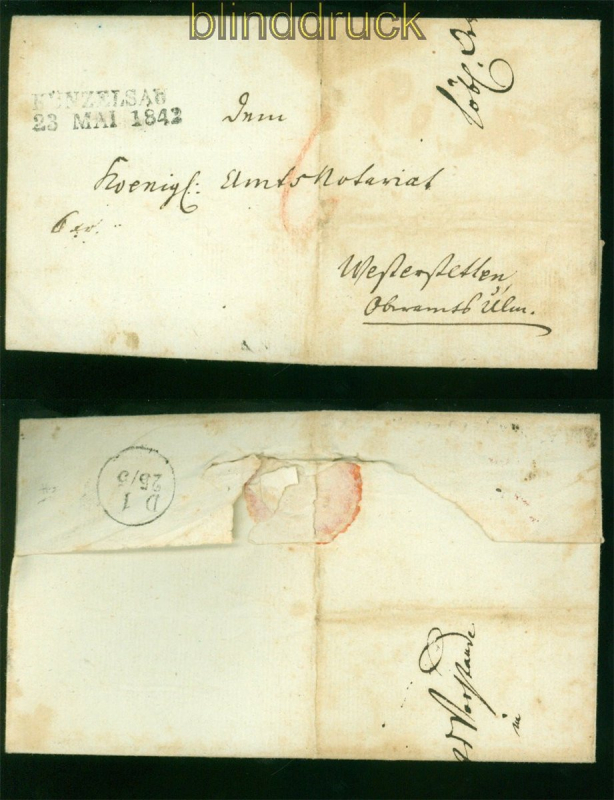 blinddruck
KÜNZELSAU
23 MAI 1842
Dem
Koenigl: Amts Notariat
6 xr.
Westerstetten,
Oberamts Ulm.
löbl.
D 1
25/5
Vorstande
in